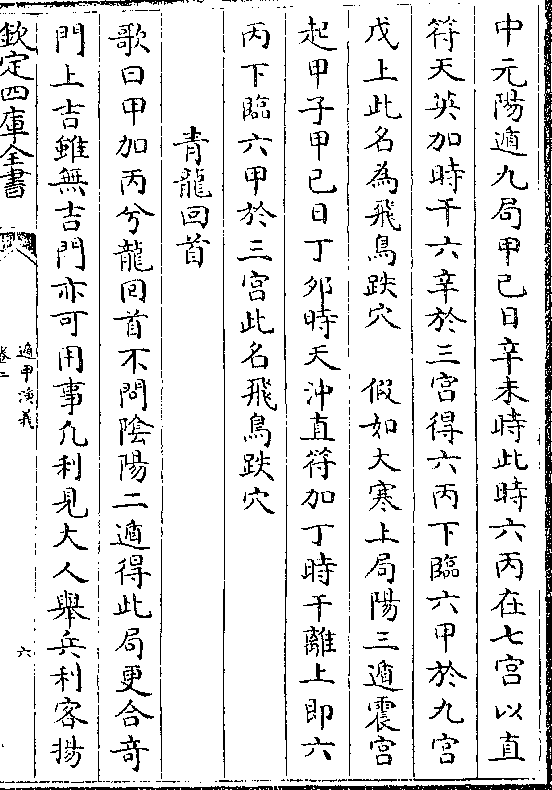 中元陽遁九局甲己日辛未時此時六丙在七宮以直
符天英加時干六辛於三宮得六丙下臨六甲於九宮
戊上此名為飛鳥跌穴　假如大寒上局陽三遁震宮
起甲子甲己日丁夘時天沖直符加丁時干離上即六
丙下臨六甲於三宮此名飛鳥跌穴
青龍回首
歌曰甲加丙兮龍回首不問陰陽二遁得此局更合竒
門上吉雖無吉門亦可用事凡利見大人舉兵利客揚
欽定四庫全書
遁甲演義
卷二
六